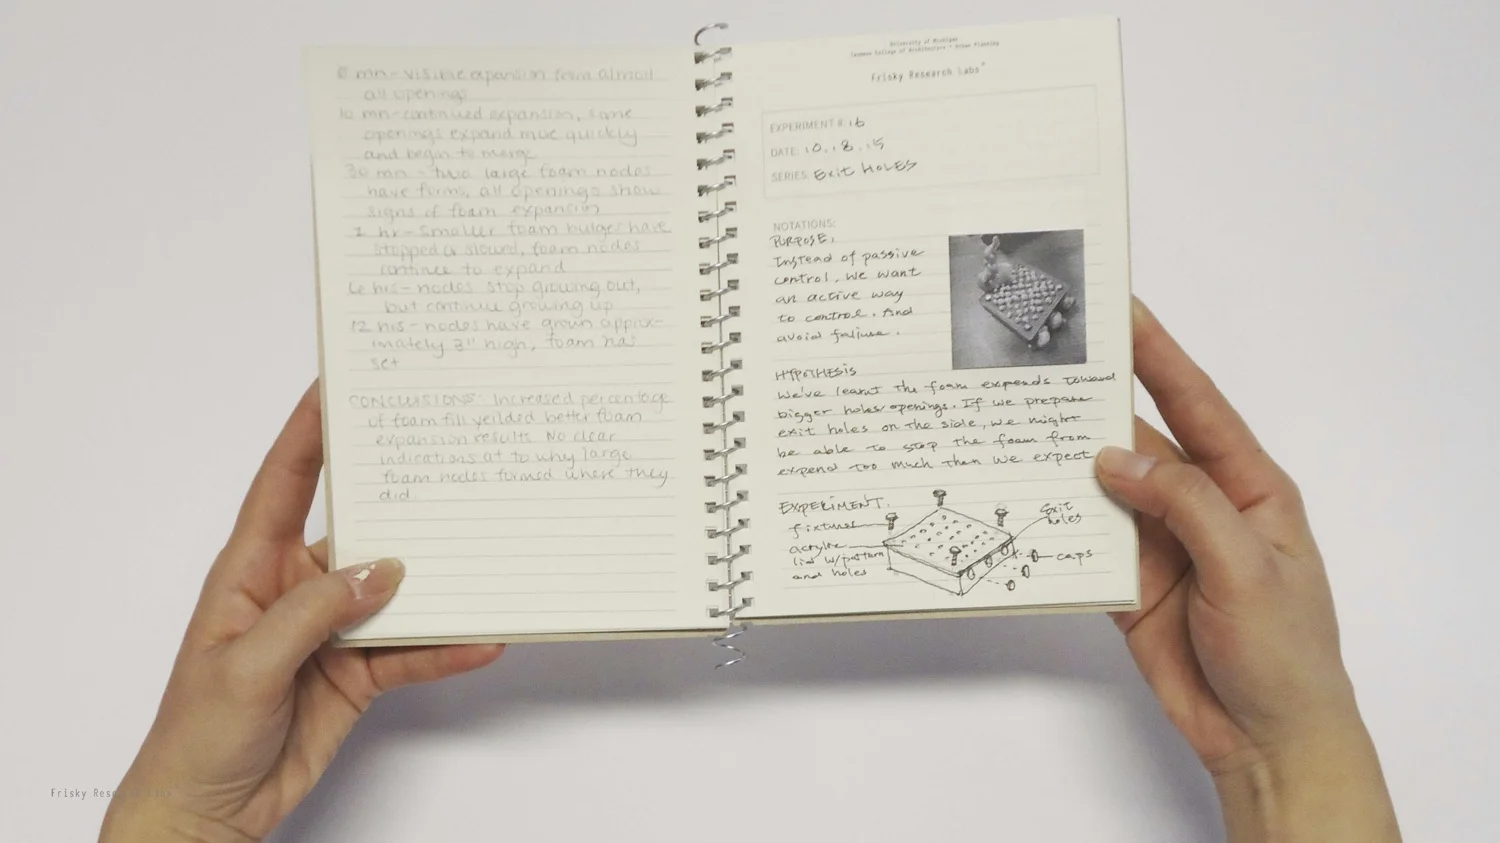 mn - visible expansion from almost
all openings
10 mn - continued expansion, some
openings expand more quickly
and begin to merge
30 mn - two large foam nodes
have forms, all openings show
signs of foam expansion
1 hr - smaller foam bulges have
stopped or slowed, foam nodes
continue to expand
6 hrs - nodes stop growing out,
but continue growing up
12 hrs - nodes have grown approx-
imately 3" high, foam has
set
CONCLUSIONS: Increased percentage
of foam fill yeilded better foam
expansion results. No clear
indications at to why large
foam nodes formed where they
did.
University of Michigan
College of Architecture + Urban Planning
Frisky Research Labs
EXPERIMENT #: 16
DATE: 10.18.15
SERIES: Exit HOLES
NOTATIONS:
PURPOSE.
Instead of passive
control, we want
an active way
to control. And
avoid failure.
HYPOTHESIS
We've learnt the foam expends toward
bigger holes/openings. If we prepare
exit holes on the side, we might
be able to stop the foam from
expend too much than we expect
EXPERIMENT.
fixtures
acrylic
lid w/pattern
and holes
Exit
holes
caps
Frisky Research Labs